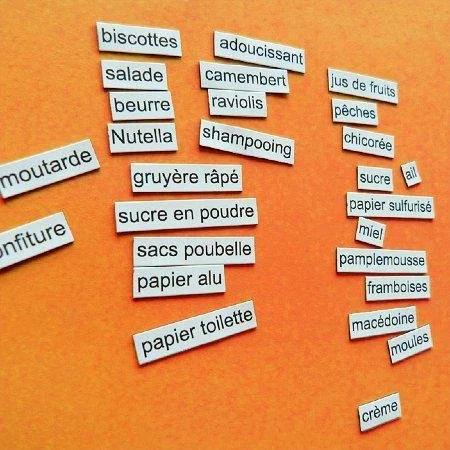 biscottes
salade
beurre
Nutella
moutarde
onfiture
gruyère râpé
sucre en poudre
sacs poubelle
papier alu
papier toilette
adoucissant
camembert
raviolis
shampooing
jus de fruits
pêches
chicorée
sucre
ail
papier sulfurisé
miel
pamplemousse
framboises
macédoine
moules
crème